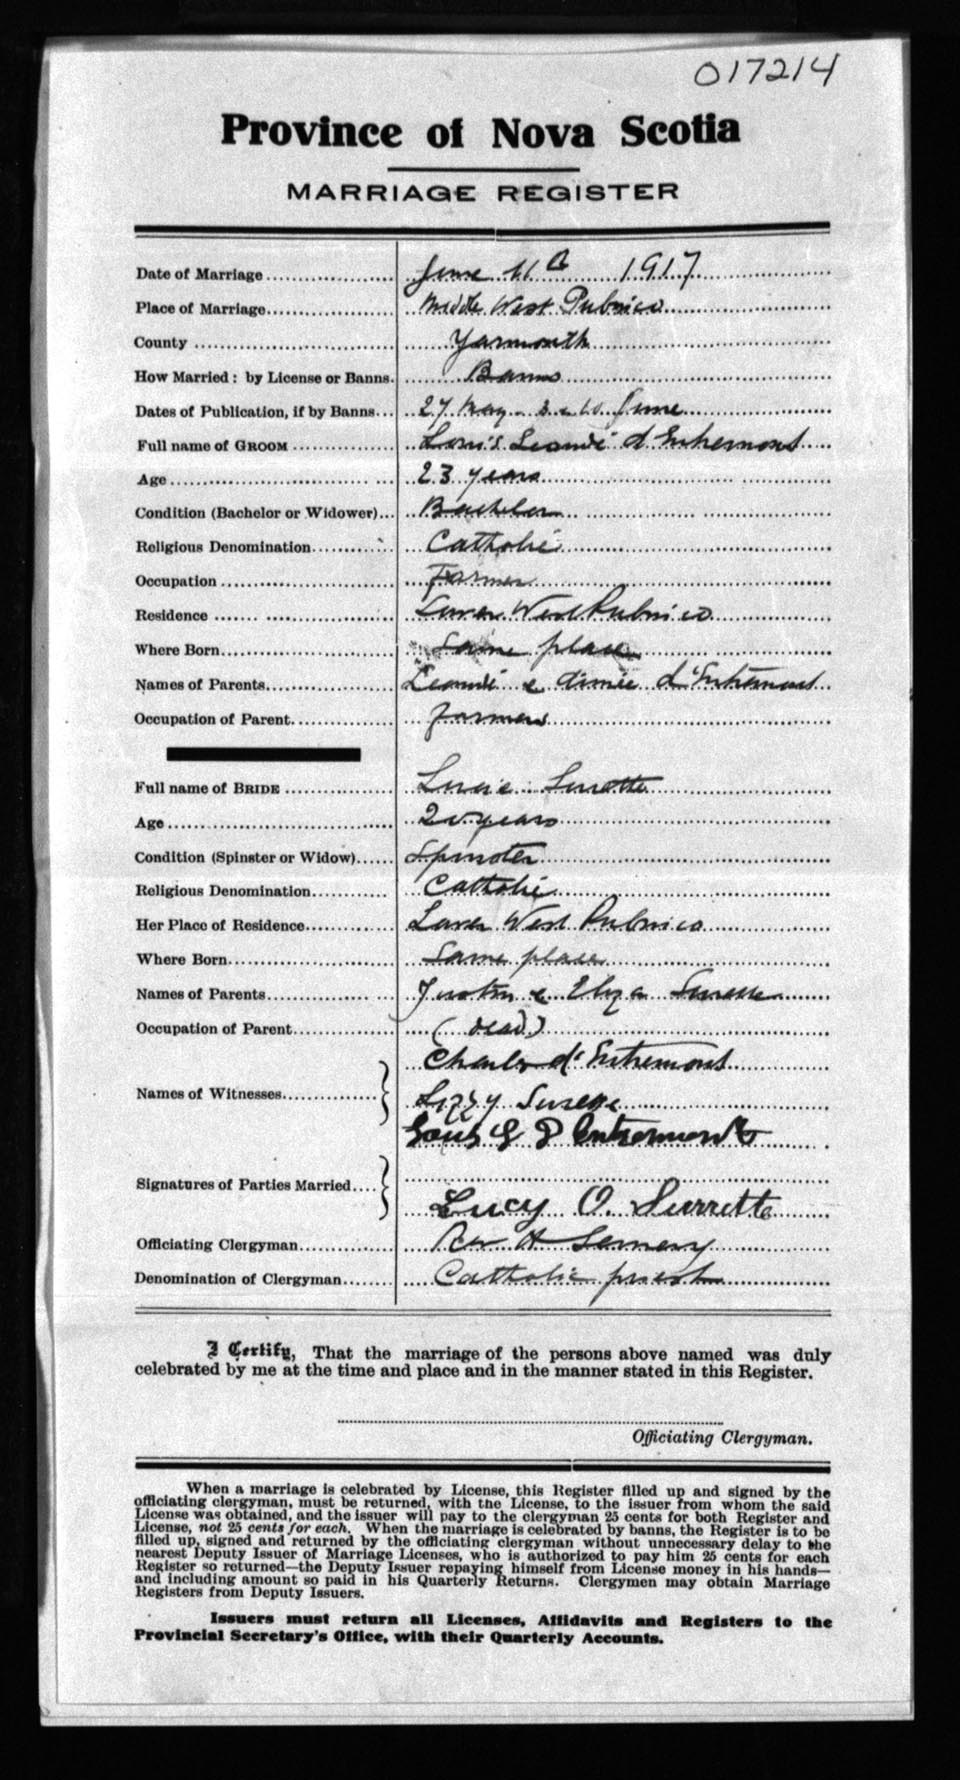 017214
Province of Nova Scotia
MARRIAGE REGISTER
Date of Marriage June 11th 1917
Place of Marriage Middle West Pubnico
County Yarmouth
How Married: by License or Banns. Banns
Dates of Publication, if by Banns 27 May - 3 & 10 June
Full name of GROOM Louis Leandré d'Entremont
Age 23 years
Condition (Bachelor or Widower) Bachelor
Religious Denomination Catholic
Occupation Farmer
Residence Lower West Pubnico
Where Born Same place
Names of Parents Leandré & d'Entremont
Occupation of Parent Farmers
Full name of BRIDE Lucie Surette
Age years
Condition (Spinster or Widow) Spinster
Religious Denomination Catholic
Her Place of Residence Lower West Pubnico
Where Born Same place
Names of Parents & Eliza Surette
Occupation of Parent (dead)
Charles d'Entremont
Names of Witnesses
Lizzy Surette
Louis L D Entremont
Signatures of Parties Married
Lucy O. Surrette
Officiating Clergyman Rev H
Denomination of Clergyman Catholic priest
I Certify, That the marriage of the persons above named was duly
celebrated by me at the time and place and in the manner stated in this Register.
Officiating Clergyman.
When a marriage is celebrated by License, this Register filled up and signed by the
officiating clergyman, must be returned, with the License, to the issuer from whom the said
License was obtained, and the issuer will pay to the clergyman 25 cents for both Register and
License, not 25 cents for each. When the marriage is celebrated by banns, the Register is to be
filled up, signed and returned by the officiating clergyman without unnecessary delay to the
nearest Deputy Issuer of Marriage Licenses, who is authorized to pay him 25 cents for each
Register so returned—the Deputy Issuer repaying himself from License money in his hands—
and including amount so paid in his Quarterly Returns. Clergymen may obtain Marriage
Registers from Deputy Issuers.
Issuers must return all Licenses, Affidavits and Registers to the
Provincial Secretary's Office, with their Quarterly Accounts.